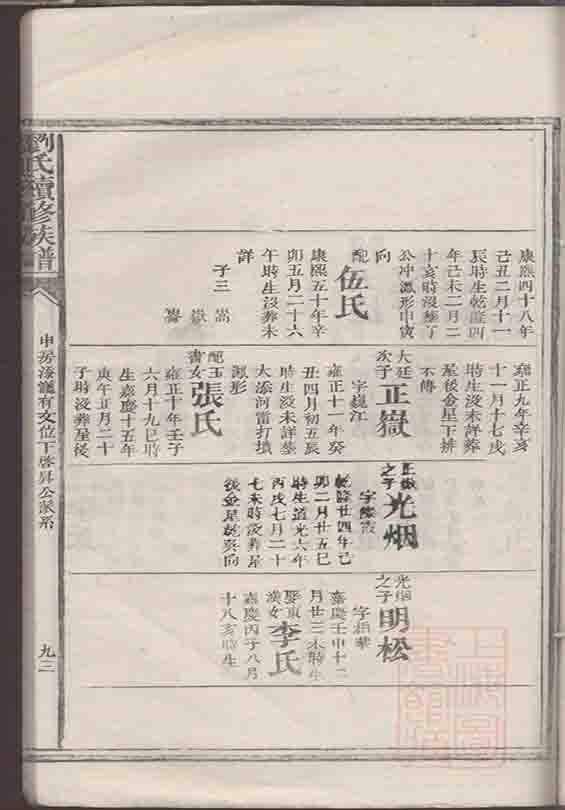 劉氏續修族譜
申房湊龍有文位下啓昇公派系
九三
康熙四十八年
己丑二月十一
辰時生乾隆四
年己未二月二
十亥時沒葬丁
公冲瀝形申寅
向
配伍氏
康熙五十年辛
卯五月二十六
午時生沒葬未
詳
子三
嵩
嶽
雍正九年辛亥
十一月十七戌
時生沒未詳葬
屋後金星下排
不傳
大廷次子正嶽
字峴江
雍正十一年癸
丑四月初五辰
時生沒未詳葬
太添河雷打墳
瀝形
配玉書女張氏
雍正十年壬子
六月十九巳時
生嘉慶十五年
庚午正月二十
子時沒葬屋後
正嶽之子光烟
字
乾隆廿四年己
卯二月廿五巳
時生道光六年
丙戌七月二十
七未時沒葬屋
後金星乾巽向
光烟之子明松
字栢華
嘉慶壬申十二
月廿三未時生
娶東漢女李氏
嘉慶丙子八月
十八亥時生
上海圖書館藏